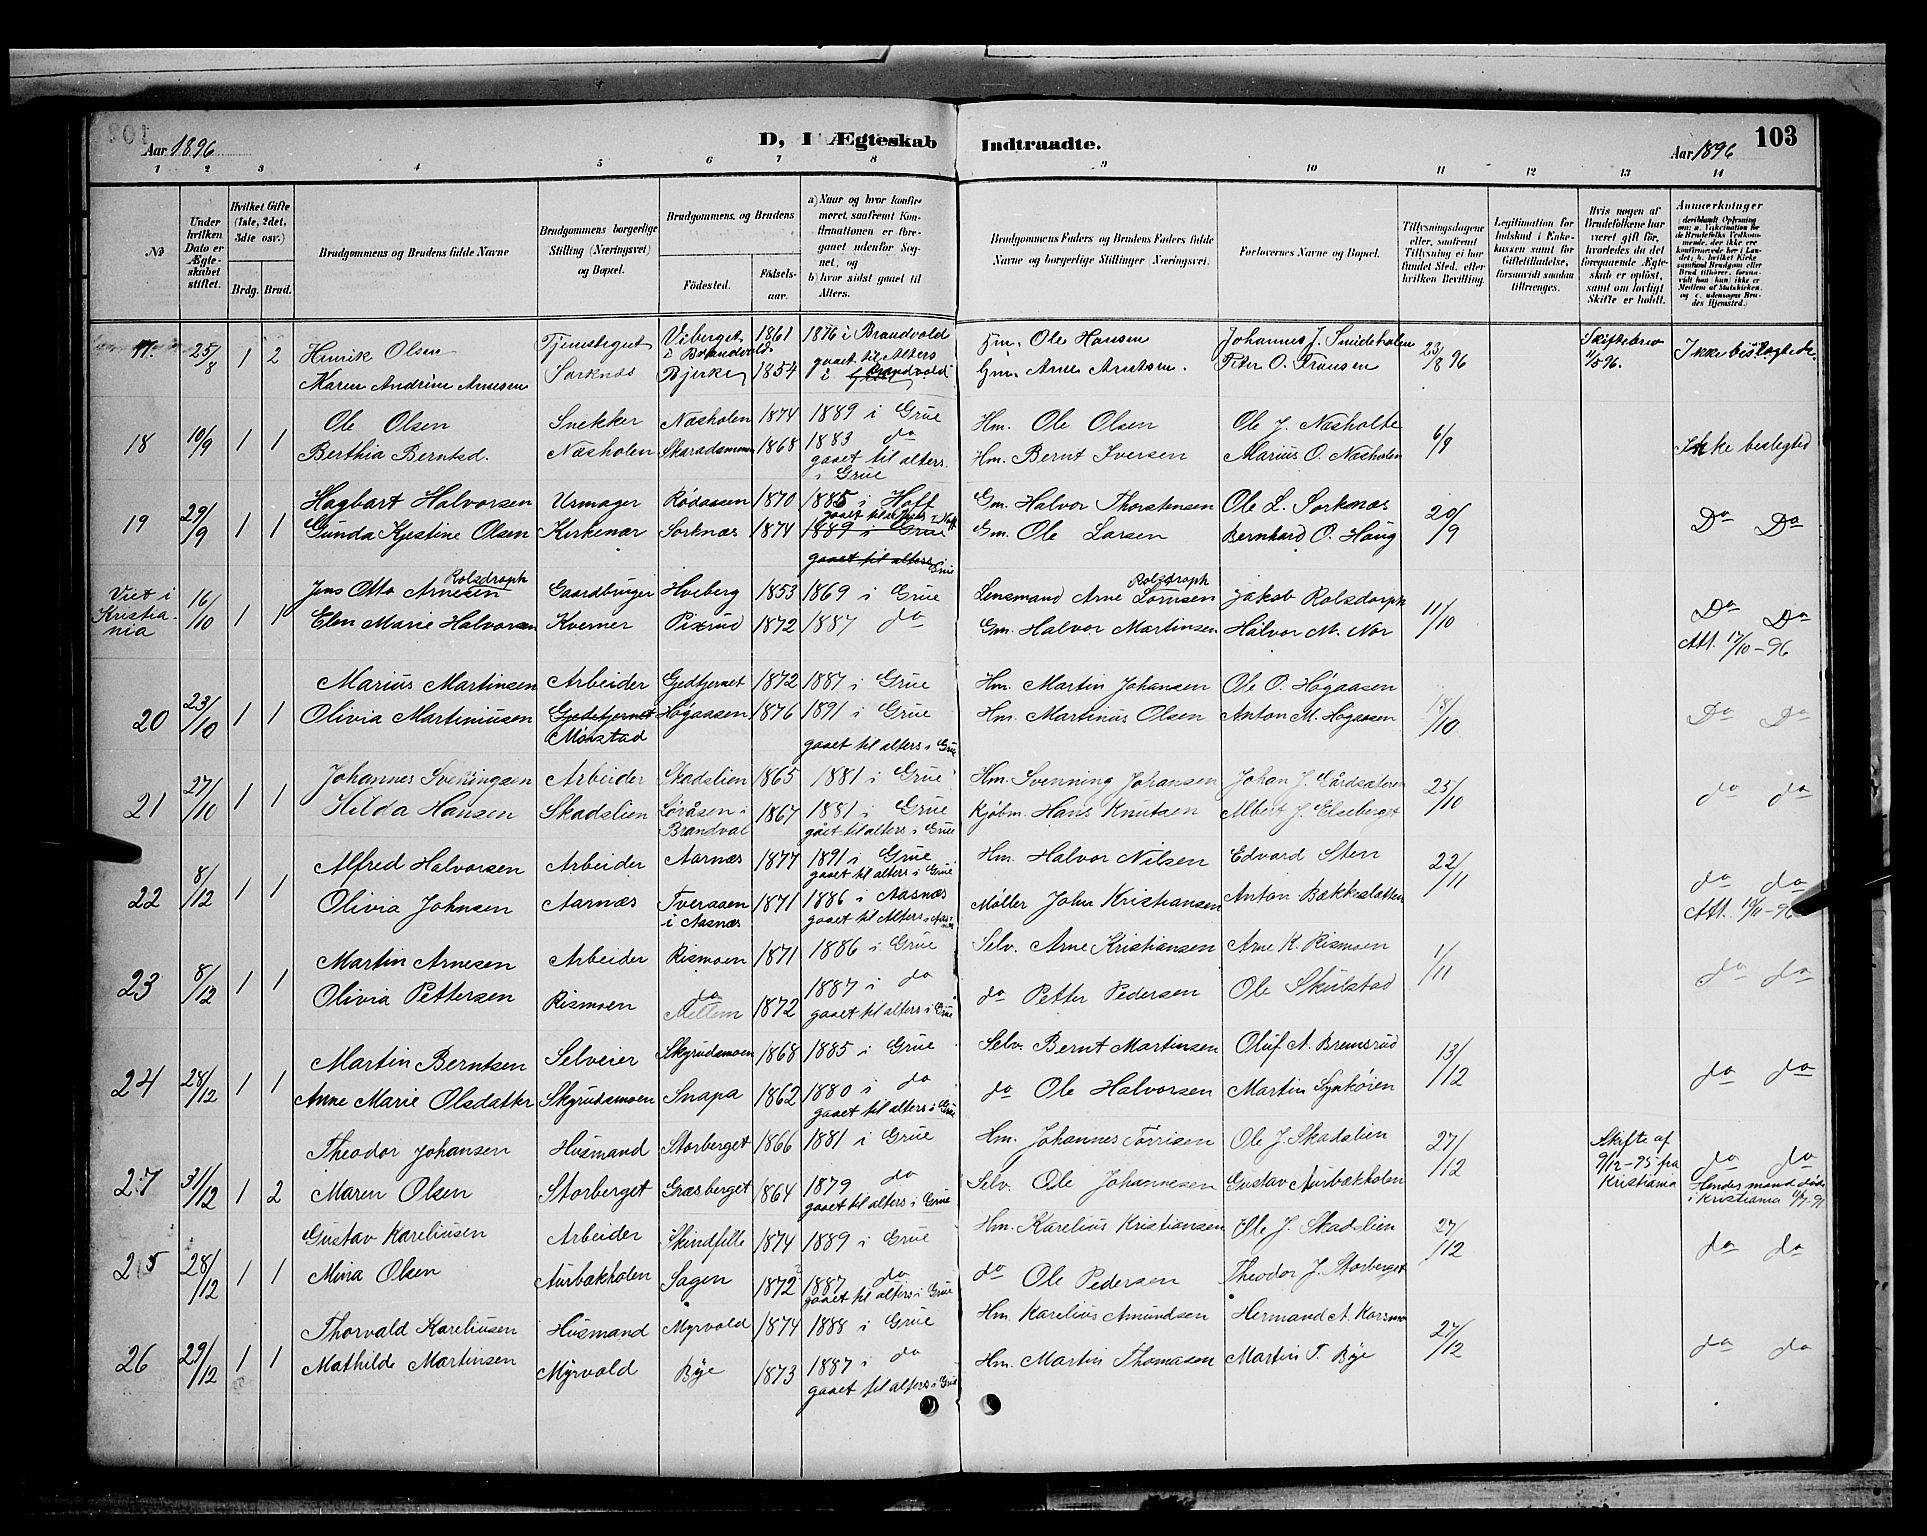 103
Aar 1896
D, I Ægteskab Indtraadte.
Aar 1896
103
1 2 3 4 5 6 7 8 9 10 11 12 13 14
No
Under hvilken Dato er Ægteskabet stiftet.
Hvilket Gifte (1ste, 2det, 3die osv.)
Brdg. Brud.
Brudgommens og Brudens fulde Navne
Brudgommens borgerlige Stilling (Næringsvei) og Bopæl.
Brudgommens, og Brudens
Födested. Födselsaar.
a) Naar og hvor konfirmeret, saafremt Konfirmationen er foregaaet udenfor Sognet, og
b) hvor sidst gaaet til Alters.
Brudgommens Faders og Brudens Faders fulde Navne og borgerlige Stillinger (Næringsvei).
Forlovernes Navne og Bopæl.
Tillysningsdagene eller, saafremt Tillysning ei har fundet Sted, efter hvilken Bevilling.
Legitimation for Indskud i Enkekassen samt for Giftetilladelse, forsaavidt saadan tiltrænges.
Hvis nogen af Brudefolkene har været gift för, hvorledes da det foregaaende Ægteskab er oplöst, samt om lovligt Skifte er holdt.
Anmerkninger
17. 25/8 1 2 Henrik Olsen Tjenestegut Viberget i Brandvold 1861 1876 i Brandvold Gm. Ole Hansen Johannes J. Snideholen 23/8 96 Skiftebrev 11/5 96. Ikke beslegtede
Karen Andrine Arnesen Sorknæs Bjerke 1854 gaaet til Alters i Brandvold Gm. Arne Arntsen. Peter O. Fransen
18 10/9 1 1 Ole Olsen Snekker Næsholen 1874 1889 i Grue Hm. Ole Olsen Ole J. Nasholte 6/9 Ikke beslegted
Berthia Berntsd. Næsholen Skaradsmoen 1868 1883 do Hm. Bernt Iversen Marius O. Næsholen
gaaet til alters i Grue
19 29/9 1 1 Hagbart Halvorsen Urmager Rødaasen 1870 1885 i Hoff Gm. Halvor Thorstensen Ole L. Sorknæs 20/9 Do Do
gaaet til alters i Hoff
Gunda Kjestine Olsen Kirkenær Sorknæs 1874 1889 i Grue Gm. Ole Larsen Bernhard O. Haug
gaaet til alters i Grue
Viet i Kristiania 16/10 1 1 Jens Otto Arnesen Rolsdroph Gaardbruger Hveberg 1853 1869 i Grue Lensmand Arne Lornsen Rolsdroph Jakob Rolsdorph 11/10 Do Do
Elen Marie Halvorsen Kverner Pixrud 1872 1887 do Gm. Halvor Martinsen Halvor M. Nor Att. 12/10-96
20 23/10 1 1 Marius Martinsen Arbeider Gjedtjernet 1872 1887 i Grue Hm. Martin Johansen Ole O. Høgaasen 18/10 Do Do
Olivia Martiniusen Gjedetjernet Mørstad Høgaasen 1876 1891 i Grue Hm. Martinus Olsen Anton M. Høgaasen
gaaet til alters i Grue
21 27/10 1 1 Johannes Svenningsen Arbeider Skadslien 1865 1881 i Grue Hm. Svenning Johansen Johan J. Gårdsæteren 25/10 do do
Hilda Hansen Skadslien Søråsen i Brandval 1867 1881 i Grue Kjøbm. Hans Knutsen Albert J. Elseberget
gået til alters i Grue
22 8/12 1 1 Alfred Halvorsen Arbeider Aarnæs 1877 1891 i Grue Hm. Halvor Nilsen Edvard Sten 22/11 do do
gaaet til alters i Grue
Olivia Johnsen Aarnæs Tveraaen i Aasnæs 1871 1886 i Aasnæs Møller John Kristiansen Anton Bækkeslatten Att. 19/11-96
gaaet til Alters i Aasnæs
23 8/12 1 1 Martin Arnesen Arbeider Rismoen 1871 1886 i Grue Selv. Arne Kristiansen Arne K. Rismoen 1/11 do do
Olivia Pettersen Rismoen do Mellem 1872 1887 i do do Petter Pedersen Ole Skulstad
gaaet til alters i Grue
24 28/12 1 1 Martin Berntsen Selveier Skyrudsmoen 1868 1885 i Grue Selv. Bernt Martinsen Oluf A. Bremsrud 13/12 do do
Anne Marie Olsdatter Skyrudsmoen Snapa 1862 1880 i do do Ole Halvorsen Martin Synhøien
gaaet til alters i Grue
27 31/12 1 2 Theodor Johansen Husmand Storberget 1866 1881 i Grue Hm. Johannes Torrisen Ole J. Skadslien 27/12 Skifte af 9/12-95 fra Kristiania do do
Maren Olsen Storberget Græsberget 1864 1879 do Selv. Ole Johannesen Gustav Aurbækholen Hendes mand døde i Kristiania
gaaet til alters i Grue
25 28/12 1 1 Gustav Kareliusen Arbeider Skindfille 1874 1889 i Grue Hm. Karelius Kristiansen Ole J. Skadslien 27/12 do do
Mina Olsen Aurbækholen Sagen 1872 1887 do do Ole Pedersen Theodor J. Storberget
gaaet til alters i Grue
26 29/12 1 1 Thorvald Kareliusen Husmand Myrvold 1874 1888 i Grue Hm. Karelius Amundsen Hermand A. Korsmo 27/12 do do
Mathilde Martinsen Myrvold Bye 1873 1887 i do Hm. Martin Thomasen Martin T. Bye
gaaet til alters i Grue